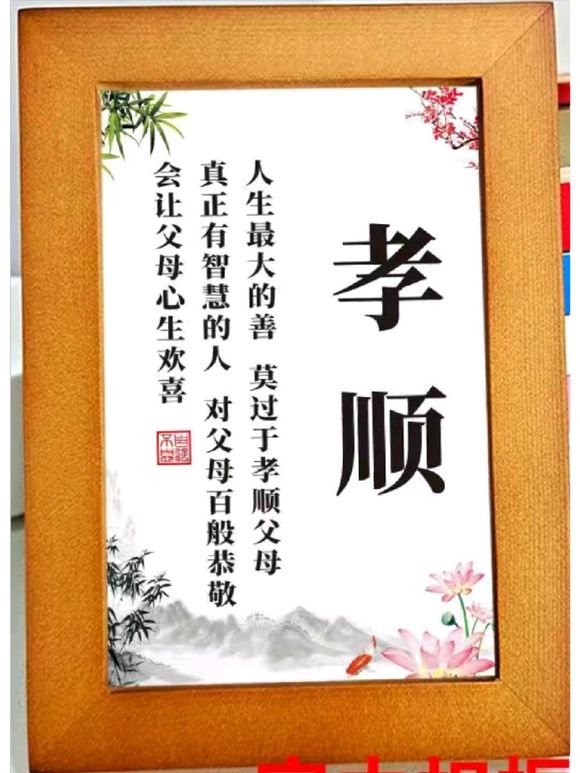 孝顺
人生最大的善 莫过于孝顺父母
真正有智慧的人 对父母百般恭敬
会让父母心生欢喜